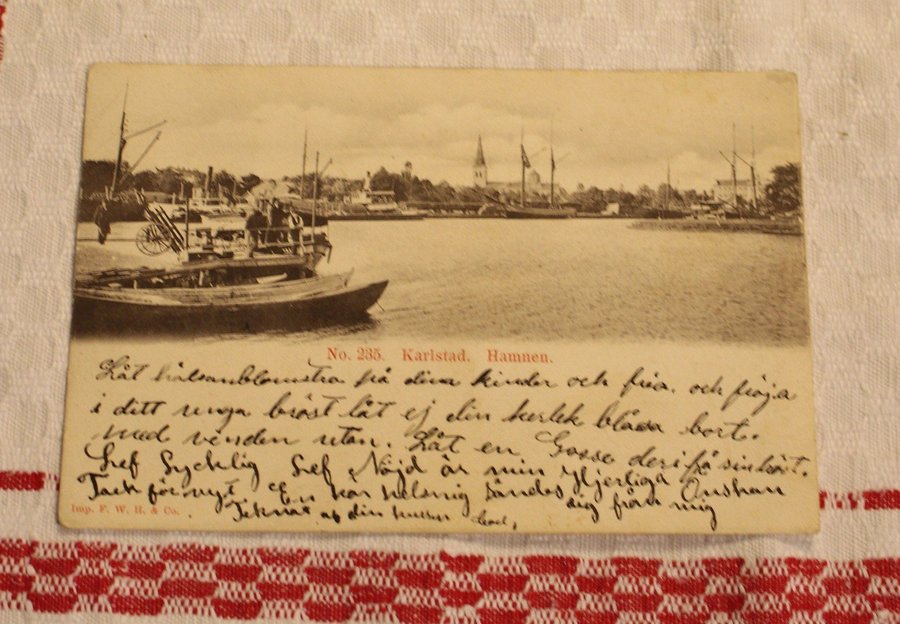 No. 235. Karlstad. Hamnen.
Låt hälsanblomstra på dina kinder och fröa. och fröja
i ditt unga bröst låt ej din kerlek blåsa bort.
med vinden utan. Låt en Gosse deri få sin
Lef Lycklig Lef Nöjd är min Hjerliga Önskan
Tack för vyt En kär helsnig sändes dig från mig
Teknar af din
Imp. F. W. H. & Co.